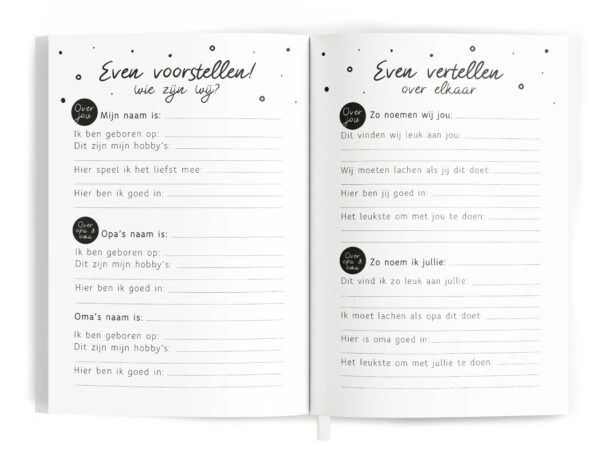 Even voorstellen!
wie zijn wij?
Over jou
Mijn naam is:
Ik ben geboren op:
Dit zijn mijn hobby's:
Hier speel ik het liefst mee:
Hier ben ik goed in:
Over opa & oma
Opa's naam is:
Ik ben geboren op:
Dit zijn mijn hobby's:
Hier ben ik goed in:
Oma's naam is:
Ik ben geboren op:
Dit zijn mijn hobby's:
Hier ben ik goed in:
Even vertellen
over elkaar
Over jou
Zo noemen wij jou:
Dit vinden wij leuk aan jou:
Wij moeten lachen als jij dit doet:
Hier ben jij goed in:
Het leukste om met jou te doen:
Over opa & oma
Zo noem ik jullie:
Dit vind ik zo leuk aan jullie:
Ik moet lachen als opa dit doet:
Hier is oma goed in:
Het leukste om met jullie te doen: